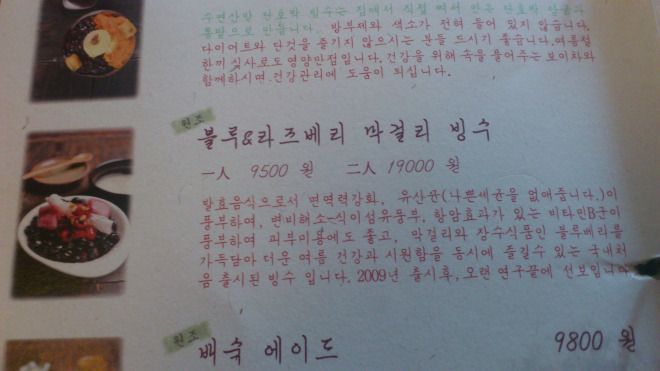 수면산방 단호박 빙수는 집에서 직접 쪄서 만든 단호박 앙금과
통팥으로 만듭니다. 방부제와 색소가 전혀 들어 있지 않습니다.
다이어트와 단것을 즐기지 않으시는 분들 드시기 좋습니다.여름철
한끼 식사로도 영양만점입니다.건강을 위해 속을 풀어주는 보이차와
함께하시면.건강관리에 도움이 되십니다.
원조
블루&라즈베리 막걸리 빙수
一人 9500 원 二人 19000 원
발효음식으로서 면역력강화, 유산균(나쁜세균을 없애줍니다.)이
풍부하여, 변비해소-식이섬유풍부, 항암효과가 있는 비타민B군이
풍부하여 피부미용에도 좋고, 막걸리와 장수식품인 블루베리를
가득담아 더운 여름 건강과 시원함을 동시에 즐길수 있는 국내처
음 출시된 빙수 입니다. 2009년 출시후, 오랜 연구끝에 선보입니다
원조
배숙 에이드 9800 원